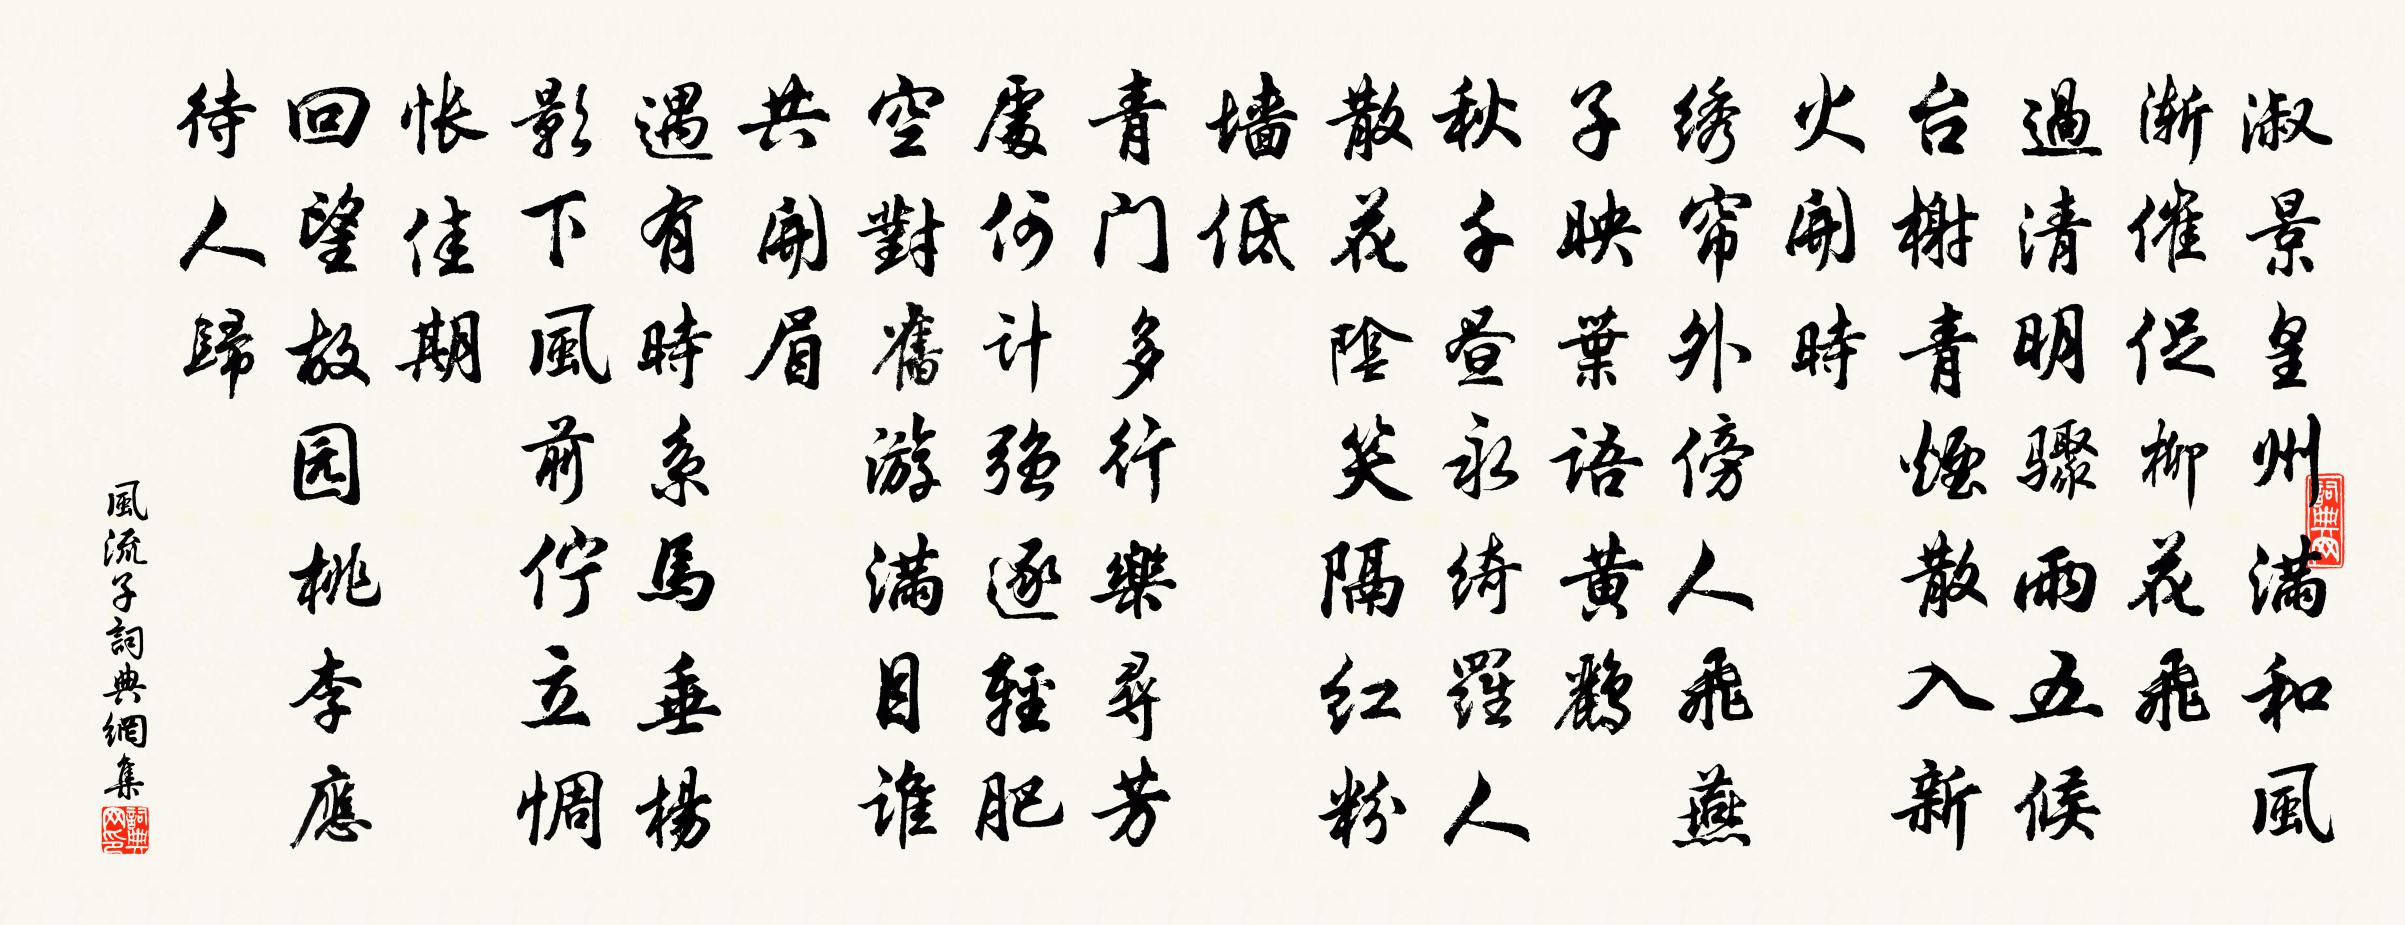 淑景皇州满和風
渐催促柳花飛
過清明驟雨五候
台榭青煙散入新
火開時
绣帘外傍人飛燕
子映葉語黄鸝
秋千昼永绮羅人
散花陰笑隔红粉
墙低
青门多行樂尋芳
處何计强逐輕肥
空對舊游满目谁
共開眉
遇有時系馬垂楊
影下風前佇立惆
怅佳期
回望故园桃李應
待人歸
風流子詞典網集
詞典网
詞典网印